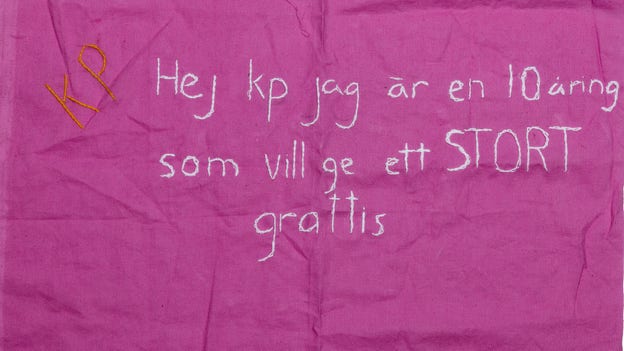 KP
Hej kp jag är en 10 åring
som vill ge ett STORT
grattis